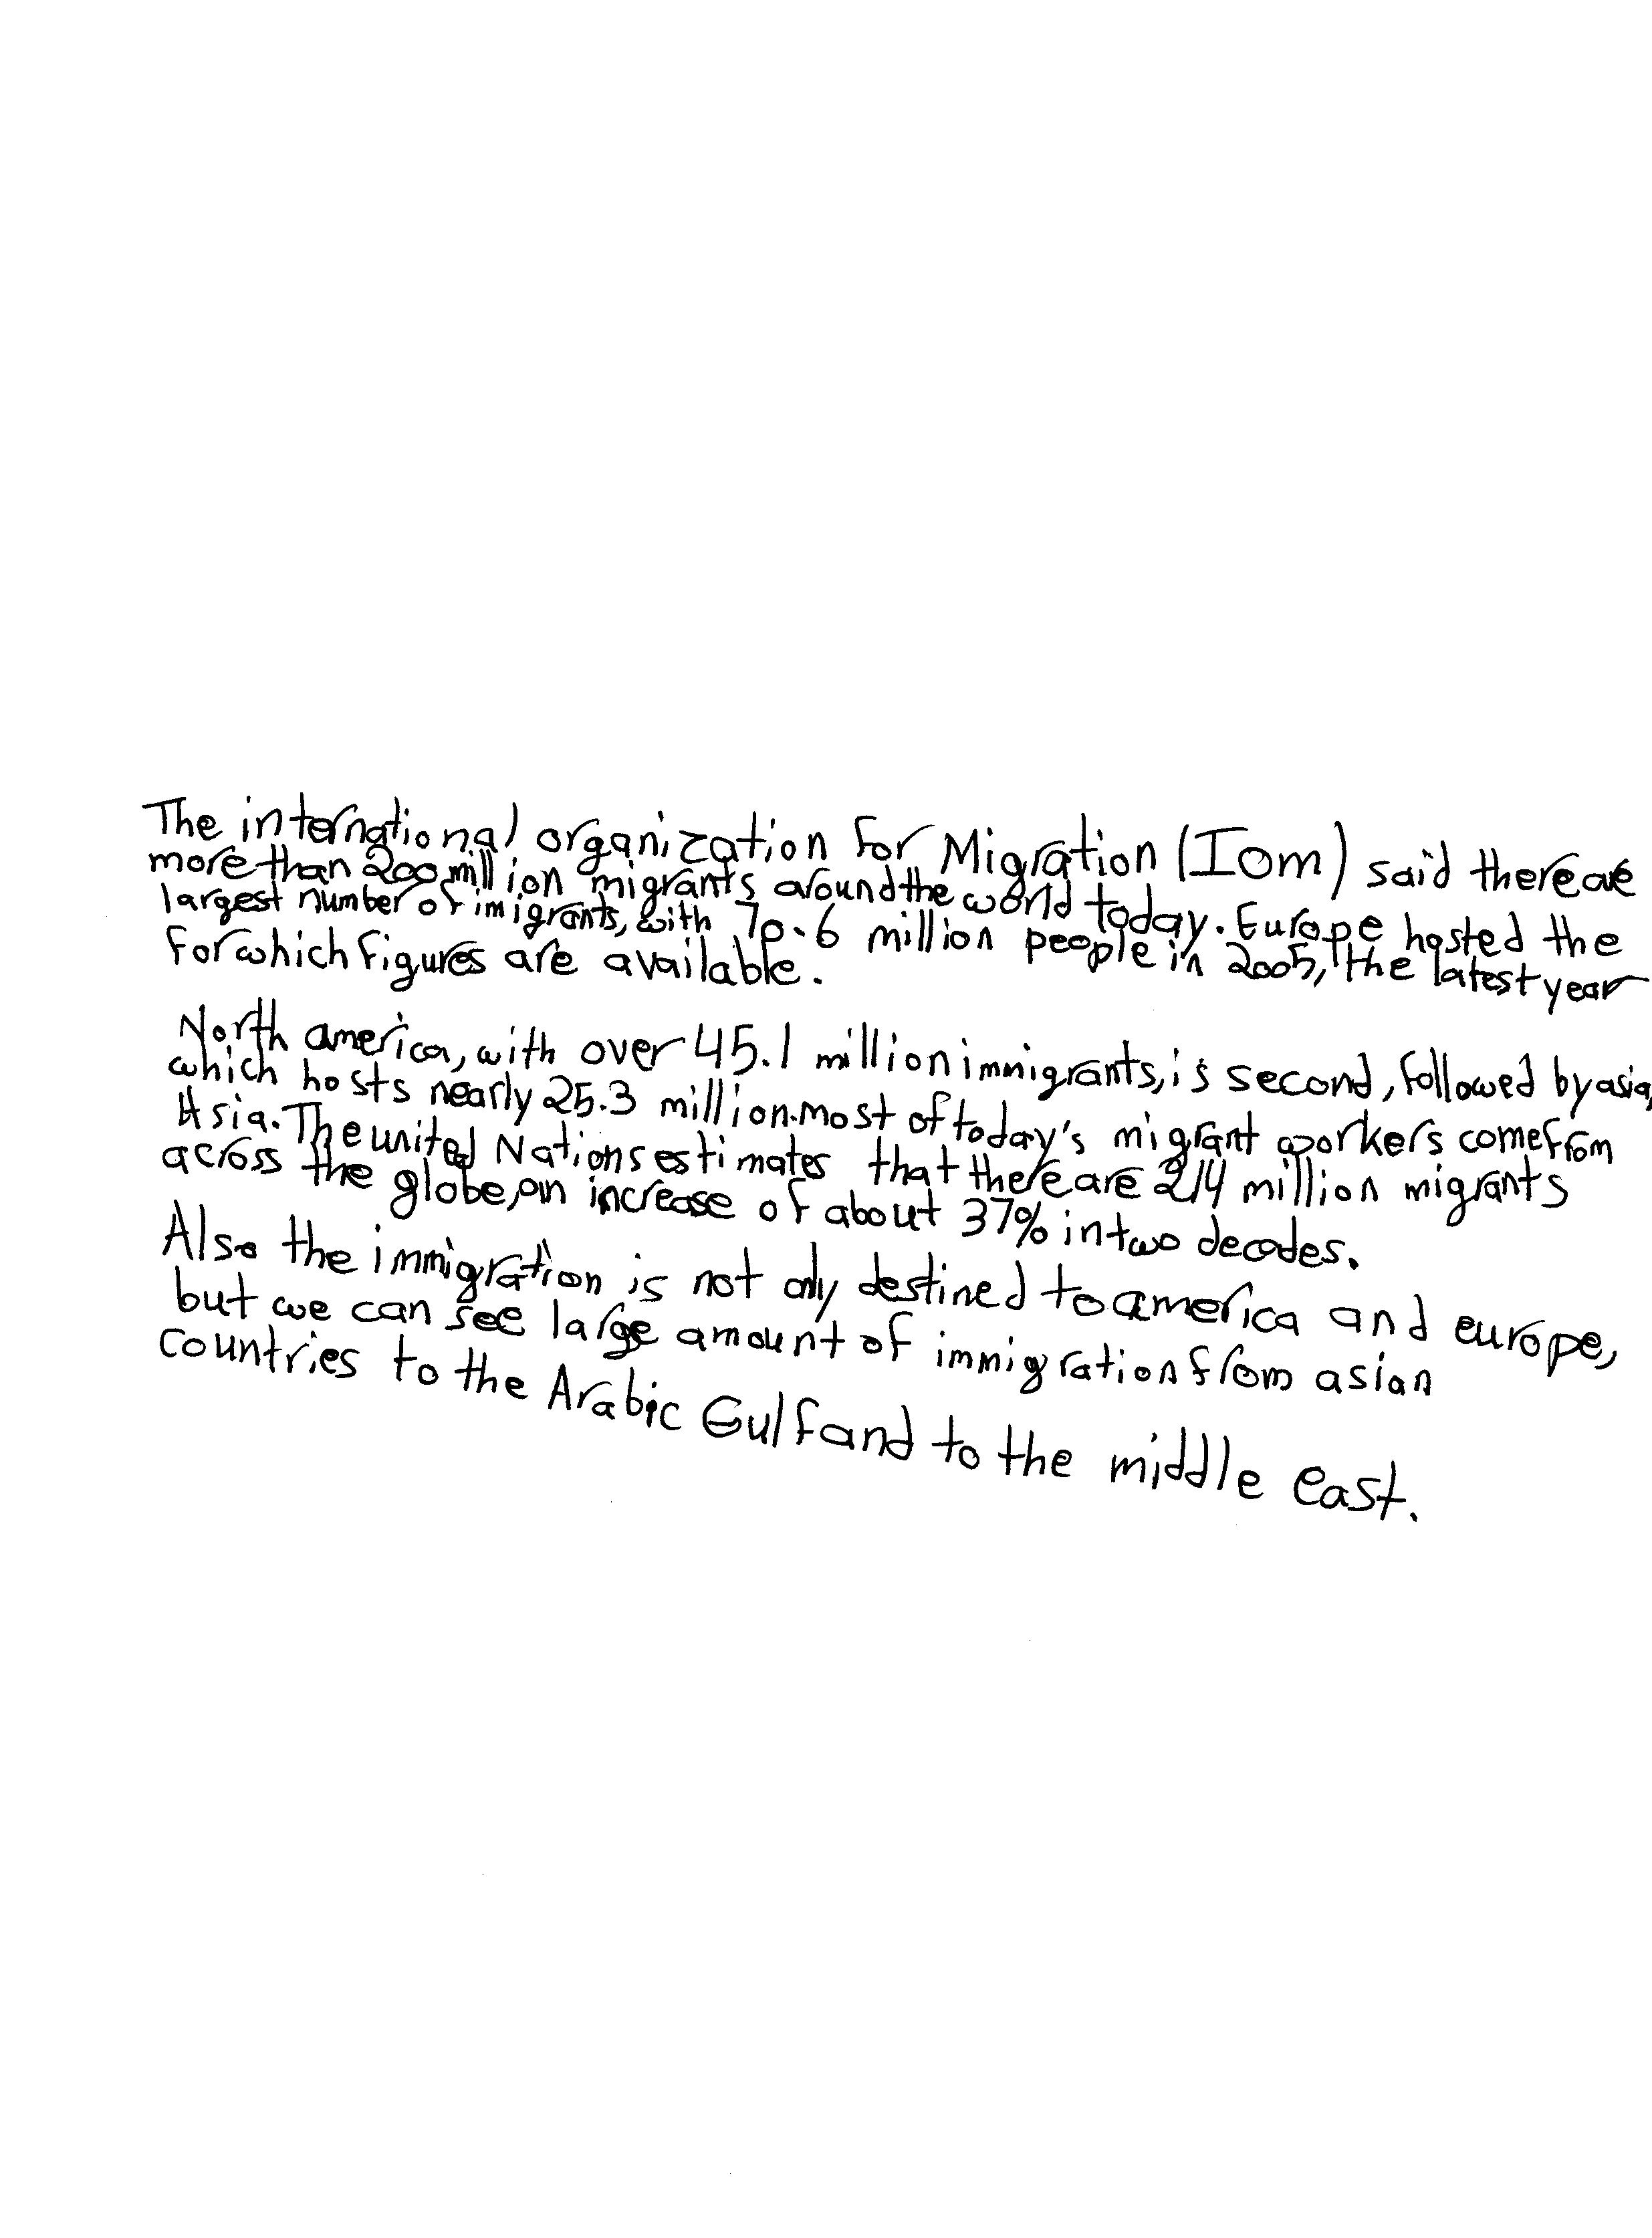 The international organization For Migration (Iom) said there are
more than 200 million migrants around the world today. Europe hosted the
largest number of imigrants, with 70.6 million people in 2005, the latest year
For which figures are available.
North america, with over 45.1 million immigrants, is second, followed by asia,
which hosts nearly 25.3 million. most of today's migrant workers come from
Asia. The united Nations estimates that there are 214 million migrants
across the globe, an increase of about 37% in two decades.
Also the immigration is not only destined to america and europe,
but we can see large amount of immigration from asian
countries to the Arabic Gulf and to the middle east.